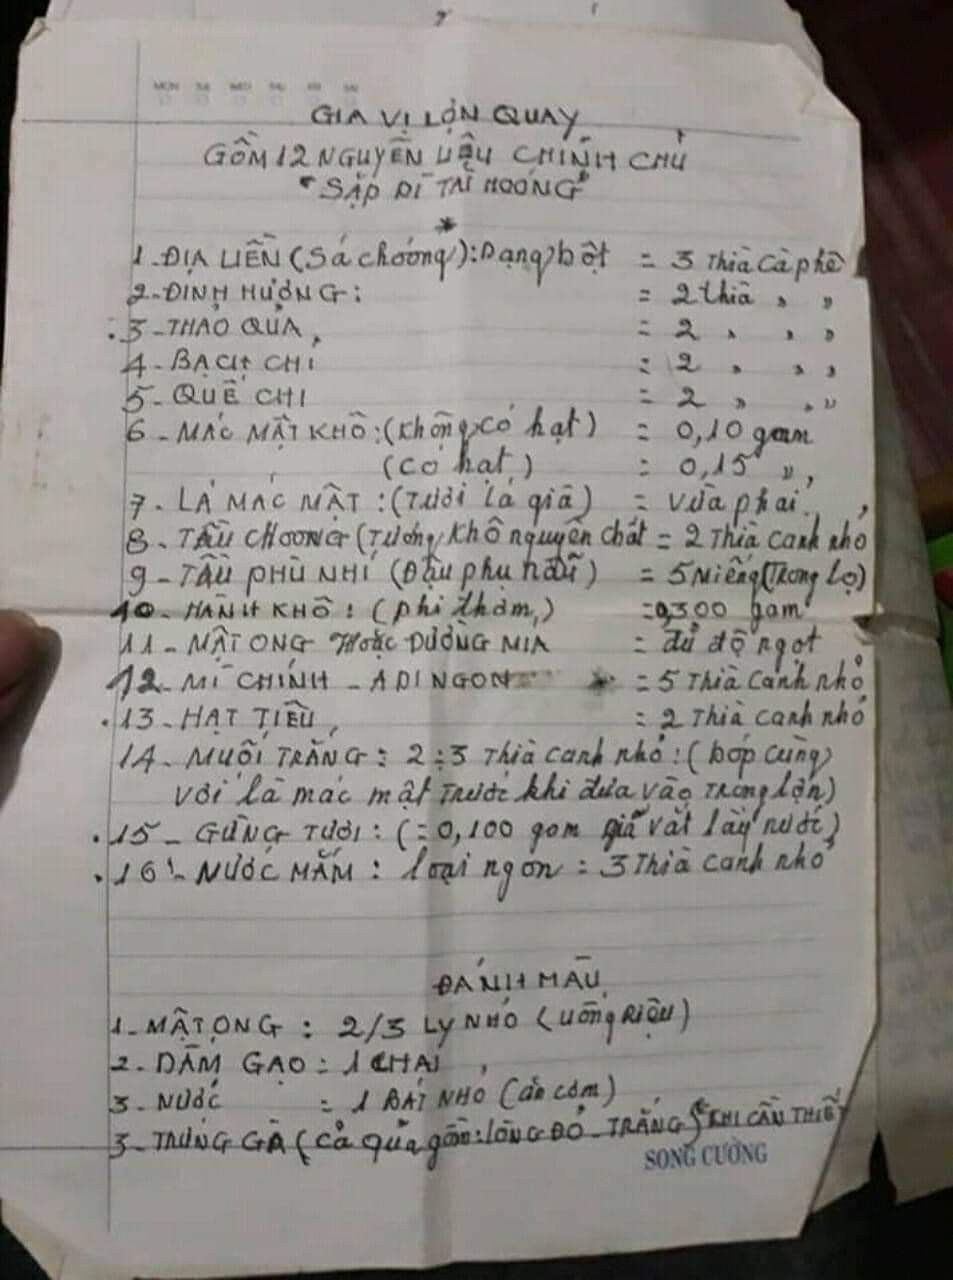 MON TUE WED THU FRI SAT
GIA VỊ LỢN QUAY
GỒM 12 NGUYÊN LIỆU CHÍNH CHỦ
"SẶP DÌ TÀI HOÓNG"
*
1. ĐỊA LIỀN (Sá chóong): Dạng bột = 3 Thìa cà phê
2- ĐINH HƯƠNG: = 2 thìa " "
.3- THẢO QUẢ, = 2 " " "
4- BẠCH CHỈ = 2 " " "
5- QUẾ CHI = 2 " " "
6- MÁC MẬT KHÔ: (Không có hạt) = 0,10 gam
(có hạt) = 0,15 "
7- LÁ MÁC MẬT: (Tươi lá già) = vừa phải
8- TẦU CHOONG (Tương khô nguyên chất = 2 Thìa canh nhỏ
9- TẦU PHÙ NHÍ (Đậu phụ nấu) = 5 Miếng (Trong lọ)
10- HÀNH KHÔ: (phi thơm) = 0,300 gam
11- MẬT ONG Hoặc ĐƯỜNG MÍA = đủ độ ngọt
12- MÌ CHÍNH - ADINGON * = 5 Thìa canh nhỏ
.13- HẠT TIÊU, = 2 Thìa canh nhỏ
14- MUỐI TRẮNG: 2:3 Thìa canh nhỏ: (bóp cùng
với lá mác mật Trước khi đưa vào Trong lợn)
.15- GỪNG TƯƠI: (= 0,100 gam giã vắt lấy nước)
.16- NƯỚC MẮM: loại ngon = 3 Thìa canh nhỏ
ĐÁNH MẦU
1- MẬT ONG: 2/3 LY NHỎ (uống RIỆU)
2- DẤM GẠO: 1 CHAI
3- NƯỚC = 1 BÁT NHỎ (ăn cơm)
3- TRỨNG GÀ (cả quả gồm: LÒNG ĐỎ - TRẮNG) KHI CẦN THIẾT
SONG CƯỜNG